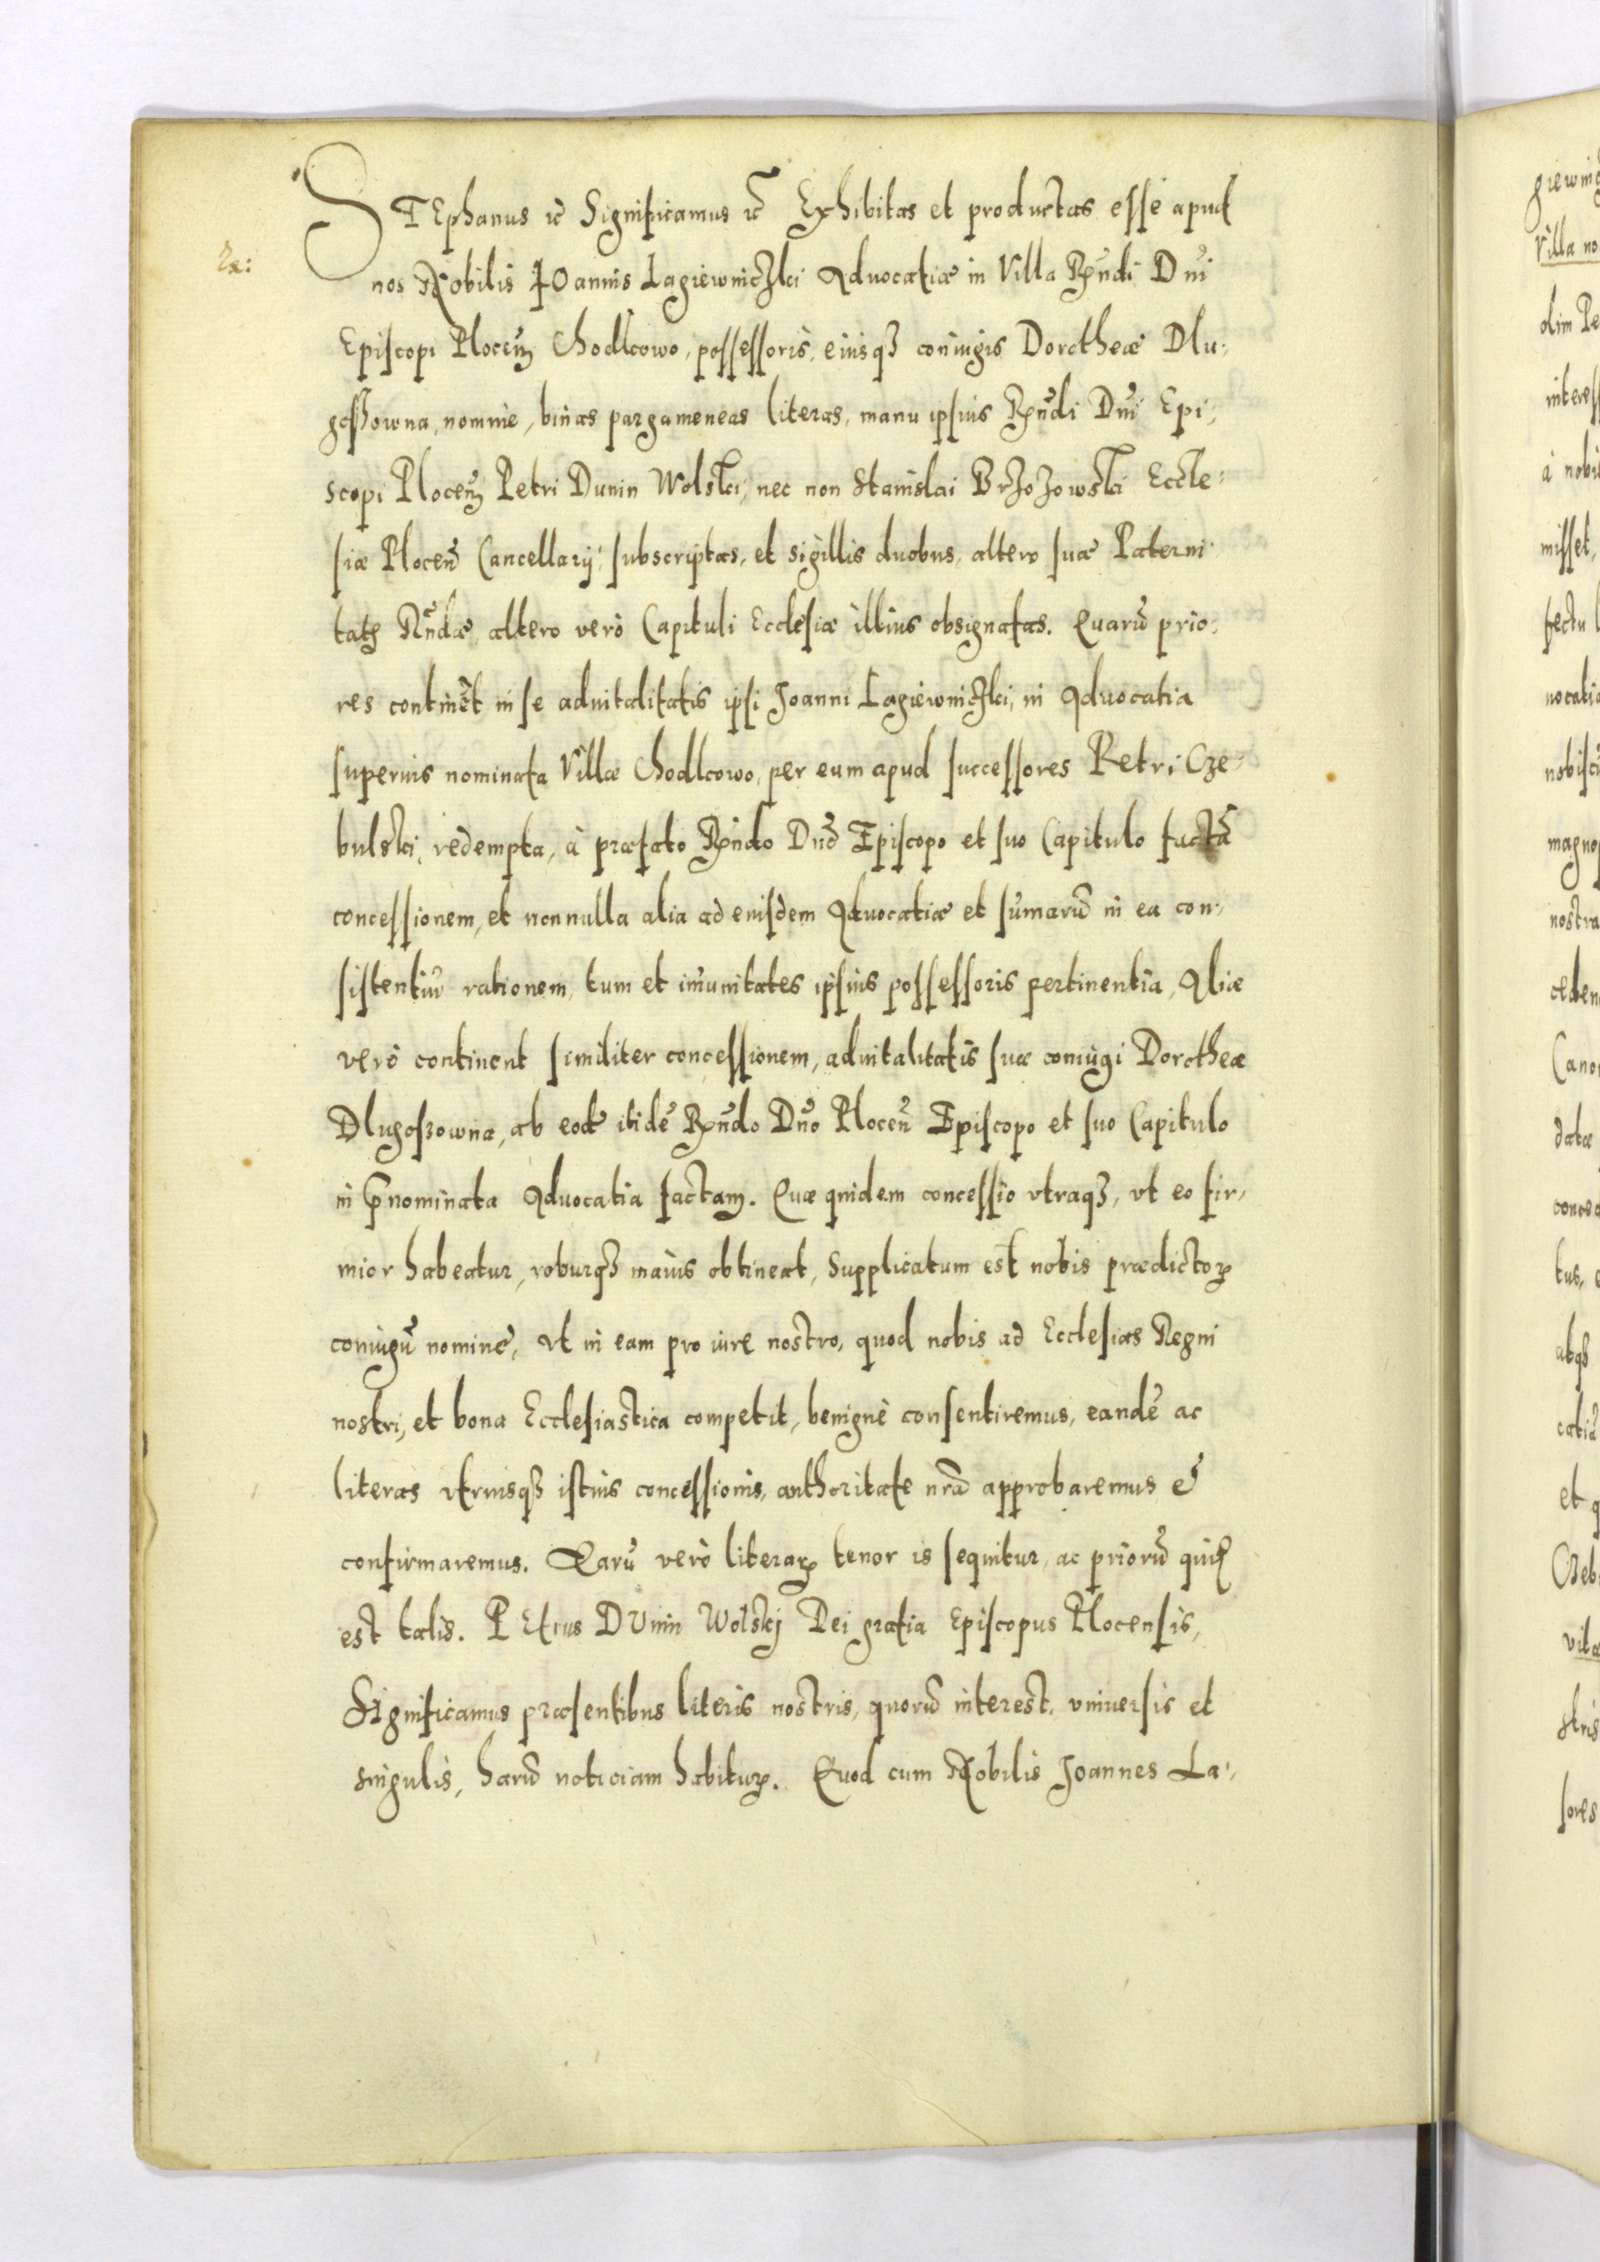 STEphanus ac Significamus ac Exhibitas et productas esse apud
2a:
nos Nobilis IOannis Lagiewniczki Advocatiæ in Villa Rndi Dni
Episcopi Plocen Chodkowo, possessoris, eiusqz coniugis Dorotheæ Dlu-
gossowna, nomine, binas pargameneas literas, manu ipsius Rndi Dni Epi-
scopi Plocen Petri Dunin Wolski, nec non Stanislai Brzozowski Eccle-
siæ Plocen Cancellarij, subscriptas, et sigillis duobus, altero suæ Paterni-
tatis Rndæ, altero verò Capituli Ecclesiæ illius obsignatas. Quarũ prio-
res continẽt in se advitalitatis ipsi Joanni Lagiewniczki, in Advocatia
superius nominata Villæ Chodkowo, per eum apud successores Petri Cze-
bulski, redempta, à præfato Rndo Dno Episcopo et suo Capitulo factã
concessionem, et nonnulla alia ad eiusdem Advocatiæ et sũmarũ in ea con-
sistentiũ rationem, tum et im̃unitates ipsius possessoris pertinentia, Aliæ
verò continent similiter concessionem, advitalitatis suæ coniugi Dorotheæ
Dlugoszownæ, ab eodẽ itidẽ Rndo Dno Plocen Episcopo et suo Capitulo
in p̃nominata Advocatia factam. Quæ quidem concessio vtraqz, vt eo fir-
mior habeatur, roburqz maius obtineat, Supplicatum est nobis prædictoꝝ
coniugũ nomine, vt in eam pro iure nostro, quod nobis ad Ecclesias Regni
nostri, et bona Ecclesiastica competit, benignè consentiremus, eandẽ ac
literas vtriusqz istius concessionis, authoritate nrã approbaremus et
confirmaremus. Earũ verò literaꝝ tenor is sequitur, ac priorũ quid
est talis. PEtrus DVnin Wolskj Dei gratia Episcopus Plocensis,
SIgnificamus præsentibus literis nostris, quorũ interest, vniuersis et
singulis, harũ noticiam habituꝝ. Quod cum Nobilis Joannes La-